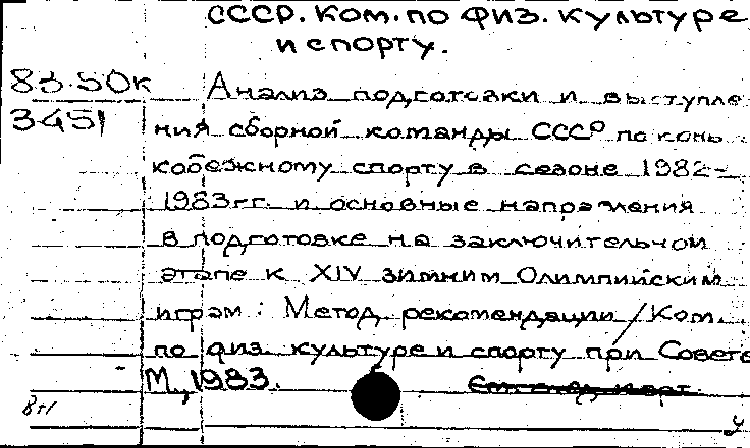 СССР. Ком. по физ. культуре
и спорту.
83-50к
3451
Анализ подготовки и выступле
ния сборной команды СССР по конь
кобежному спорту в сезоне 1982-
1983гг. и основные направления
в подготовке на заключительном
этапе к XIV зимним Олимпийским
играм : Метод. рекомендации / Ком.
по физ. культуре и спорту при Совете
М., 1983.
8т1